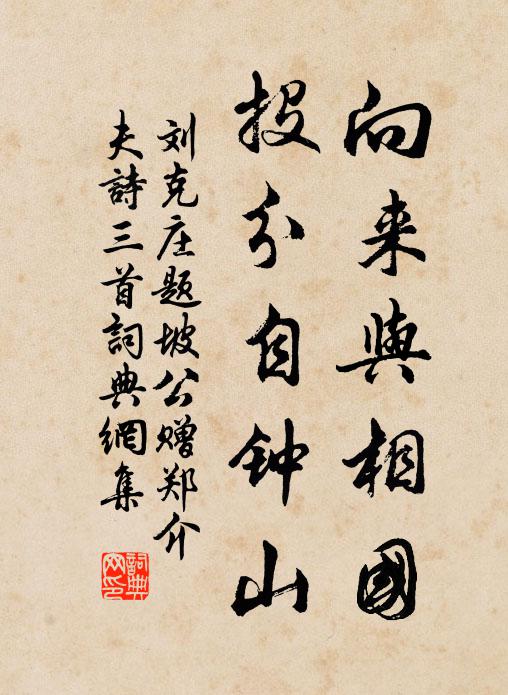 向来與相國
投分自钟山
刘克庄题坡公赠郑介
夫詩三首詞典網集
詞典
网印